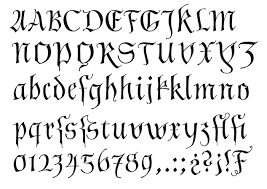 AABCDEFGIJKLM
NOPQRSTUVXYZ
abcdefghhijkklmno
pqrſsſstuvwxyzſlſi
0123456789,.:;¿?¡!F